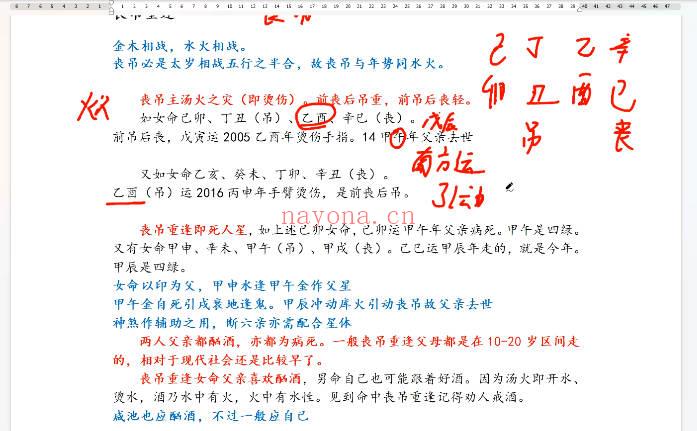 丧吊重逢
金木相战，水火相战。
丧吊必是太岁相战五行之半合，故丧吊与年势同水火。
丧吊主汤火之灾（即烫伤）。前丧后吊重，前吊后丧轻。
如女命己卯、丁丑（吊）、乙酉、辛巳（丧）。
前吊后丧，戊寅运 2005 乙酉年烫伤手指。14 甲午年父亲去世
又如女命乙亥、癸未、丁卯、辛丑（丧）。
乙酉（吊）运 2016 丙申年手臂烫伤，是前丧后吊。
丧吊重逢即死人星，如上述己卯女命，己卯运甲午年父亲病死。甲午是四绿。
又有女命甲申、辛未、甲午（吊）、甲戌（丧）。己巳运甲辰年走的，就是今年。
甲辰是四绿。
女命以印为父，甲申水逢甲午金作父星
甲午金自死引戌衰地逢鬼。甲辰冲动库火引动丧吊故父亲去世
神煞作辅助之用，断六亲亦需配合星体
两人父亲都酗酒，亦都为病死。一般丧吊重逢父母都是在 10-20 岁区间走
的，相对于现代社会还是比较早了。
丧吊重逢女命父亲喜欢酗酒，男命自己也可能跟着好酒。因为汤火即开水、
烫水，酒乃水中有火，火中有水性。见到命中丧吊重逢记得劝人戒酒。
咸池也应酗酒，不过一般应自己
己 丁 乙 辛
卯 丑 酉 巳
吊 丧
戊辰
南方运
引动
nayona.cn